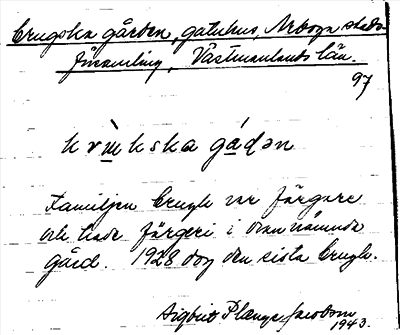 Crughska gården, gatuhus, Arboga stads-
församling, Västmanlands län.
97
krɯ̀kska gádən
Familjen Crugh var färgare
och hade färgeri i ovannämnda
gård. 1928 dog den sista Crugh.
Sigbrit Plænge Jacobson
1943.